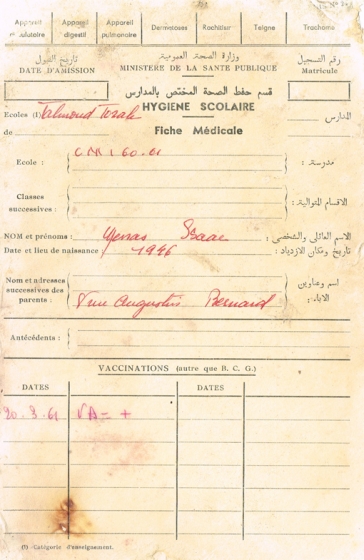 Appareil Appareil Appareil Dermatoses Rachitisme Teigne Trachome
digestif pulmonaire
تاريخ القبول وزارة الصحة العمومية رقم التسجيل
DATE D'AMISSION MINISTERE DE LA SANTE PUBLIQUE Matricule
قسم حفظ الصحة المختص بالمدارس
HYGIENE SCOLAIRE
Ecoles (1) Talmud Torah المدارس
de Fiche Médicale
Ecole : C M 1 60-61 مدرسة :
Classes
successives : الاقسام المتوالية :
NOM et prénoms : Isaac الاسم العائلي والشخصي :
Date et lieu de naissance 1946 تاريخ ومكان الازدياد :
Nom et adresses اسم وعناوين
successives des
parents : rue Augustus Bernard الاباء :
Antécédents :
VACCINATIONS (autre que B. C. G.)
DATES DATES
20.3.61 VA = +
(1) Catégorie d'enseignement.